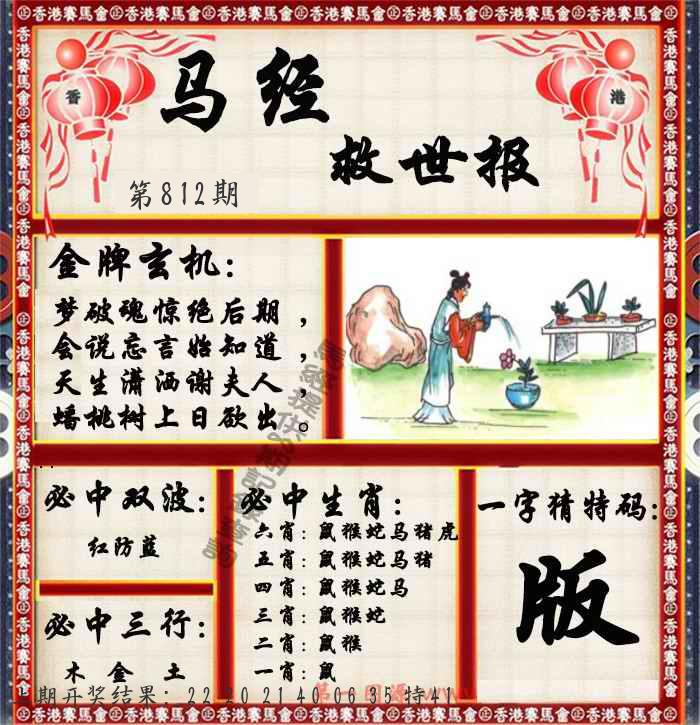 马经
救世报
香
港
第812期
金牌玄机：
梦破魂惊绝后期，
会说忘言始知道，
天生潇洒谢夫人，
蟠桃树上日欲出。
必中双波：
红防蓝
必中三行：
木 金 土
必中生肖：
六肖：鼠猴蛇马猪虎
五肖：鼠猴蛇马猪
四肖：鼠猴蛇马
三肖：鼠猴蛇
二肖：鼠猴
一肖：鼠
一字猜特码：
版
期开奖结果：22 20 21 40 06 35 特41
香港赛馬會